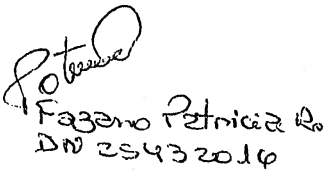 Fazano Patricia Ro
DN 25432014